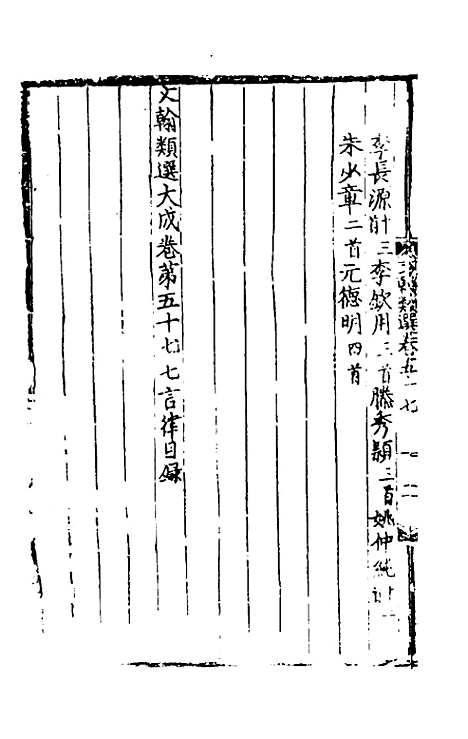 李長源十三首李欽用三首滕秀穎三首姚仲純
朱少章二首元德明四首
文翰類選大成卷第五十七七言律目錄